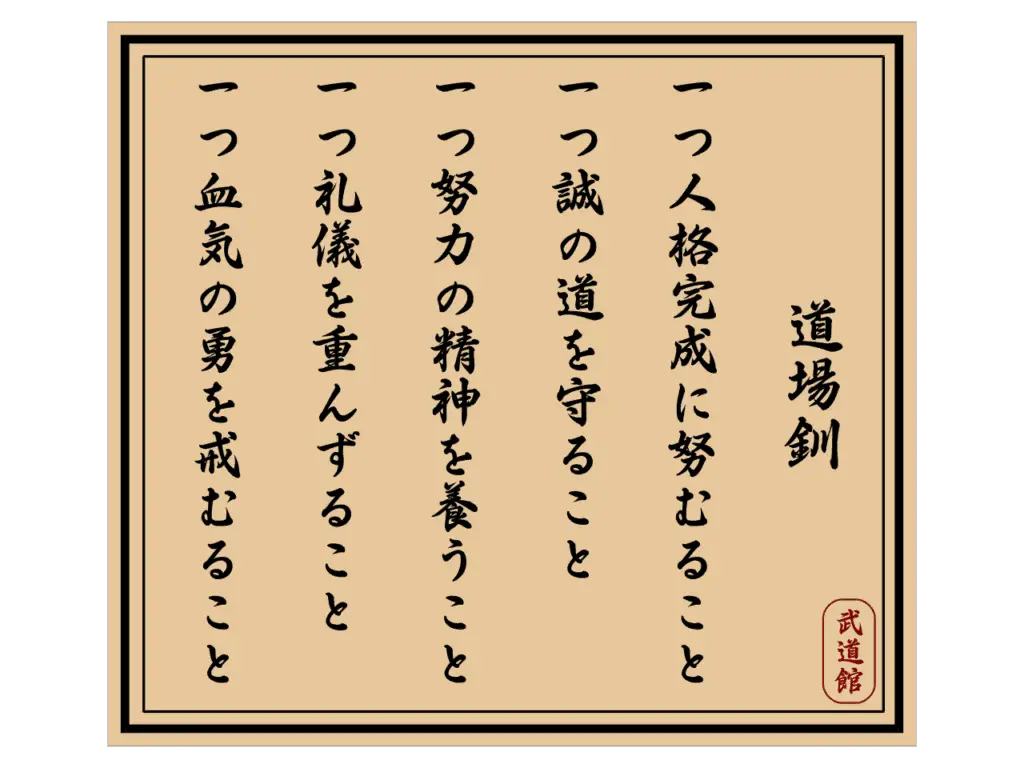 道場釧
一つ人格完成に努むること
一つ誠の道を守ること
一つ努力の精神を養うこと
一つ礼儀を重んずること
一つ血気の勇を戒むること
武道館